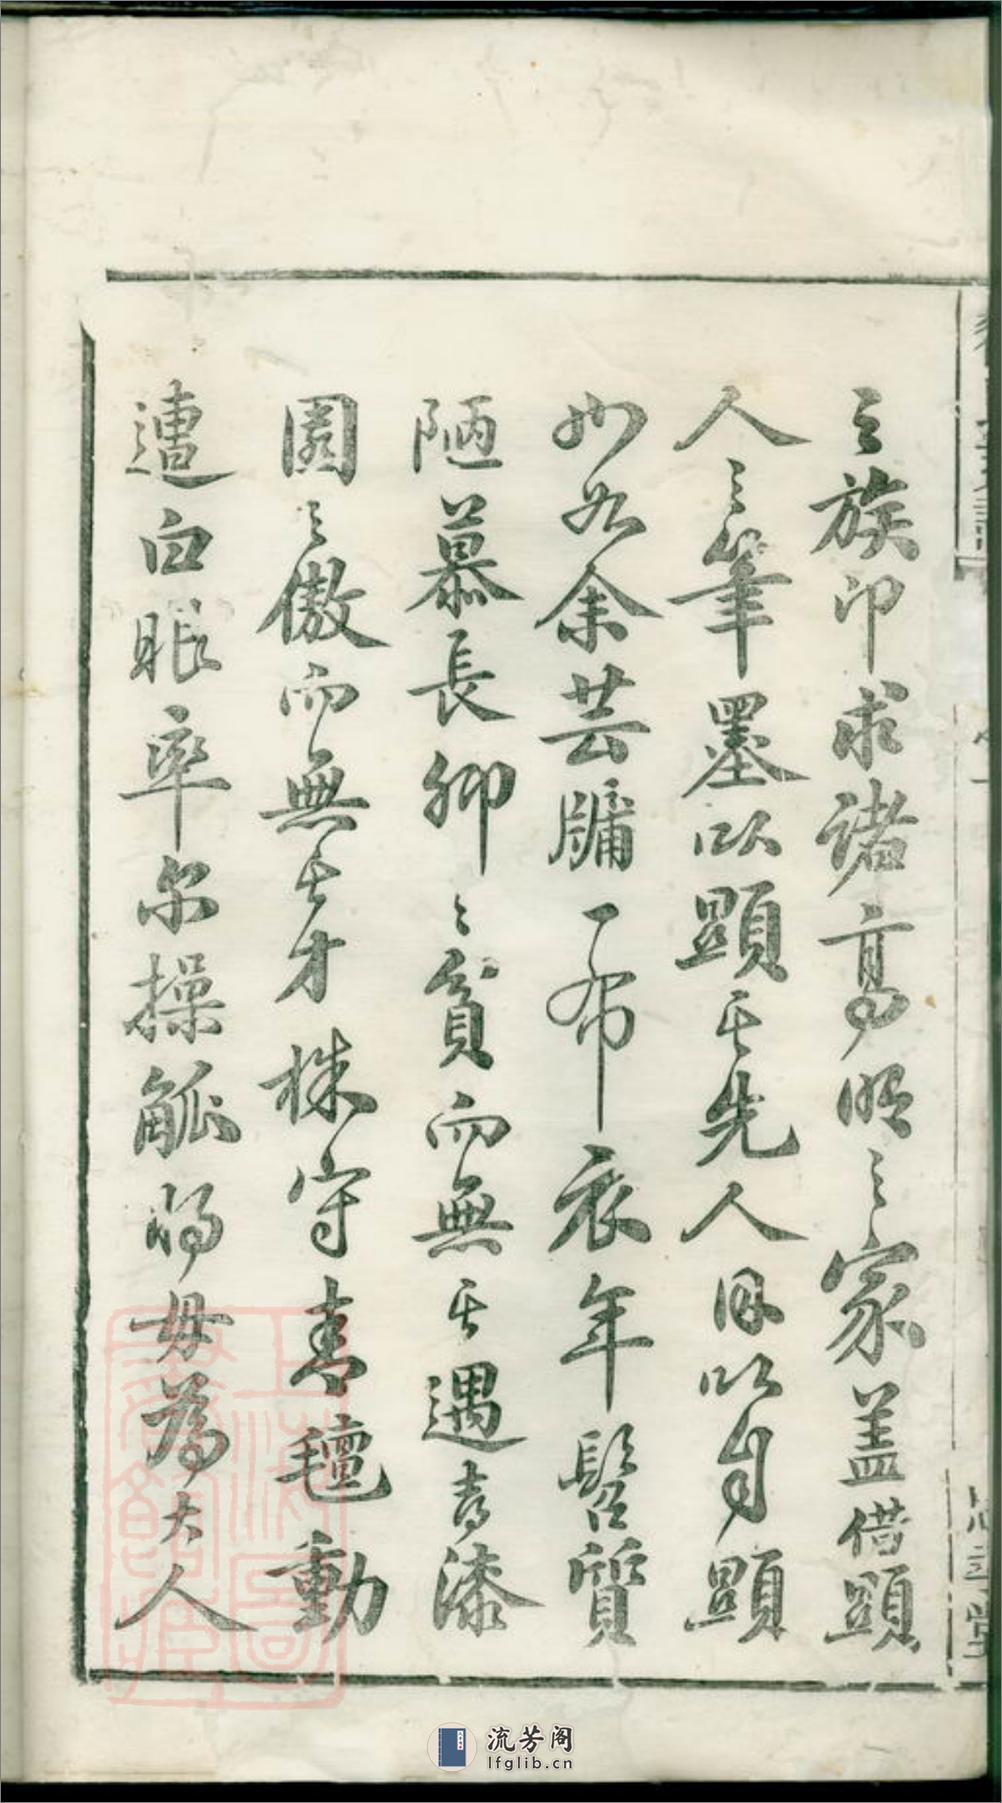 之族印求諸高明之家蓋借顯
人之筆墨以顯其先人因以自顯
也如余芸牖一布衣年髫質
陋慕長卿之貧而無其遇喜漆
園之傲而無其才株守青氊動
遭白眼率尔操觚得毋為大人
流芳阁
lfglib.cn